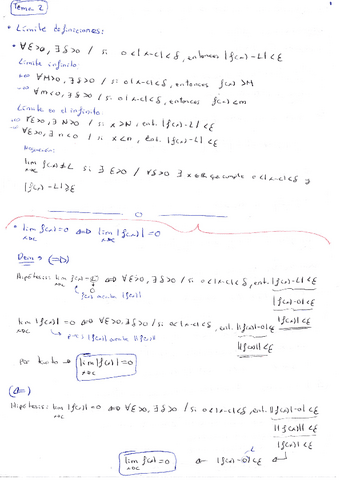 Tema 2
• Límite definiciones:
• ∀ε>0, ∃δ>0 / si 0<|x-c|<δ, entonces |f(x)-L|<ε
Límite infinito:
+∞ ∀M>0, ∃δ>0 / si 0<|x-c|<δ, entonces f(x)>M
-∞ ∀m<0, ∃δ>0 / si 0<|x-c|<δ, entonces f(x)<m
Límite en el infinito:
+∞ ∀ε>0, ∃N>0 / si x>N, ent. |f(x)-L|<ε
-∞ ∀ε>0, ∃n<0 / si x<n, ent. |f(x)-L|<ε
Negación:
lim f(x)≠L si ∃ε>0 / ∀δ>0 ∃x que cumple 0<|x-c|<δ y
x→c
|f(x)-L|≥ε
• lim f(x)=0 ⟺ lim |f(x)|=0
x→c x→c
Dem → (⇒)
Hipótesis: lim f(x)=0 ⟺ ∀ε>0, ∃δ>0 / si 0<|x-c|<δ, ent. |f(x)-L|<ε
x→c
|f(x)-0|<ε
|f(x)|<ε
lim |f(x)|=0 ⟺ ∀ε>0, ∃δ>0 / si 0<|x-c|<δ, ent. ||f(x)|-0|<ε
x→c
||f(x)||<ε
por tanto → lim |f(x)|=0
x→c
(⇐)
Hipótesis: lim |f(x)|=0 ⟺ ∀ε>0, ∃δ>0 / si 0<|x-c|<δ, ent. ||f(x)|-0|<ε
x→c
||f(x)||<ε
|f(x)|<ε
lim f(x)=0 ⇐ |f(x)-0|<ε ⇐
x→c